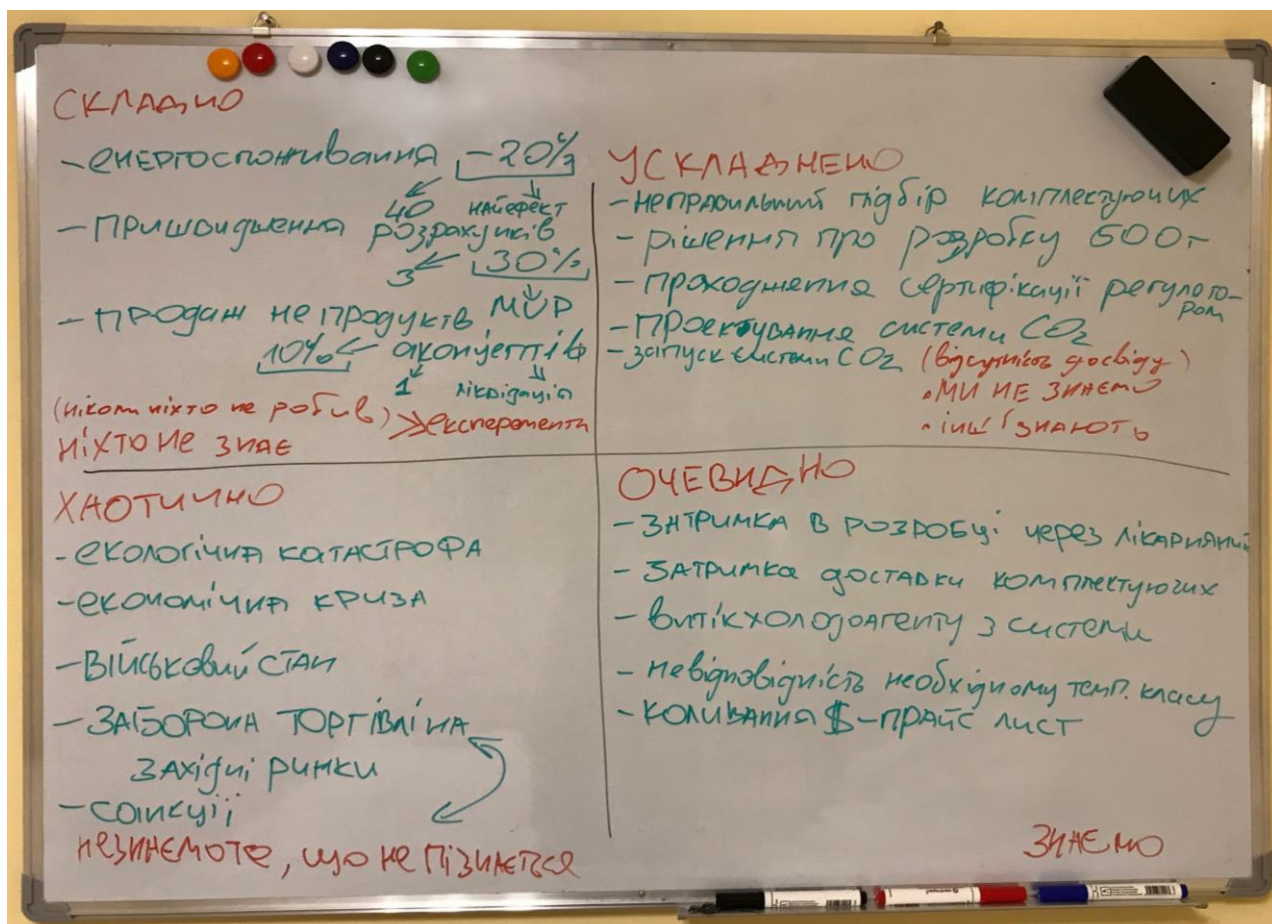 СКЛАДНО
- енергоспоживання -20%
40 найефект
- Пришвидшення розрахунків
3 30%
- продаж не продуктів, MVP
10% а концептів
1 ліквідація
(ніколи ніхто не робив)
ніхто не знає
≫експерименти
УСКЛАДНЕНО
- неправильний підбір комплектуючих
- рішення про розробку 600т
- проходження сертифікації регулято-
ром
- Проектування системи CO2
- запуск системи CO2 (відсутність досвіду)
• МИ НЕ ЗНАЄМО
• інші знають
ХАОТИЧНО
- екологічна катастрофа
- економічна криза
- Військовий стан
- Заборона торгівлі на
західні ринки
- санкції
незнаємоте, що не пізнається
ОЧЕВИДНО
- затримка в розробці через лікарняний
- затримка доставки комплектуючих
- витік холодоагенту з системи
- невідповідність необхідному темп. класу
- коливання $ - прайс лист
ЗНАЄМО